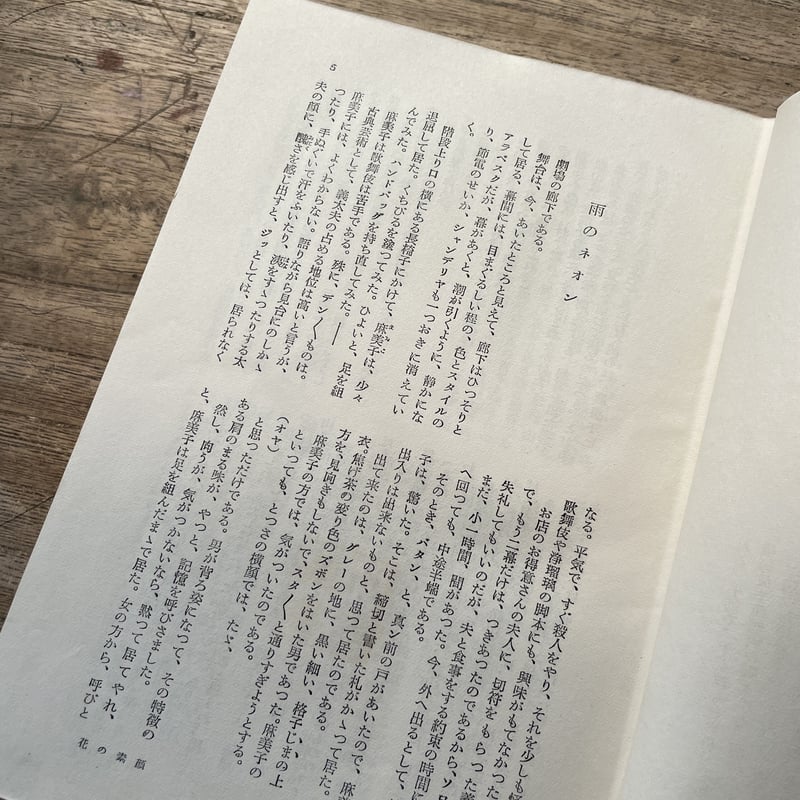 5
雨のネオン
劇場の廊下である。
舞台は、今、あいたところと見えて、廊下はひっそりと
して居る、幕間には、目まぐるしい程の、色とスタイルの
アラベスクだが、幕があくと、潮が引くように、静かにな
り、節電のせいか、シャンデリヤも一つおきに消えてい
く。
階段上り口の横にある長椅子にかけて、麻美子は、少々
退屈して居た。くちびるを鎹つてみた。ひよいと、足を組
んでみた。ハンドバッグを持ち直してみた。――
麻美子は歌舞伎は苦手である。殊に、デン〳〵ものは。
古典芸術として、義太夫の占める地位は高いと言うが、
麻美子には、よくわからない。語りながら見台にのしかゝ
つたり、手ぬぐいで汗をふいたり、洟をすゝつたりする太
夫の顔に、醜さを感じ出すと、ジッとしては、居られなく
なる。平気で、すぐ殺人をやり、それを少しも
歌舞伎や浄瑠璃の脚本にも、興味がもてなかった
お店のお得意さんの夫人に、切符をもらった
で、もう一幕だけは、つきあつたのであるから、
失礼してもいいのだが、夫と食事をする約束の時間に
まだ、小一時間、間があつた。今、外へ出るとして、
へ回つても、中途半端である。
そのとき、バタン、と、真ン前の戸があいたので、麻
子は、驚いた。そこは、締切と書いた札がかゝつて居た。
出入りは出来ないものと、思つて居たのである。
出て来たのは、グレーの地に、黒い細い、格子じまの上
衣。焦げ茶の変り色のズボンをはいた男であつた。麻美子の
方を、見向きもしないで、スタ〳〵と通りすぎようとする。
麻美子の方では、気がついたのである。
といつても、とつさの横顔では、たゞ、
（オヤ）
と思つただけである。男が背ろ姿になつて、その特徴の
ある肩のまる味が、やつと、記憶を呼びさました。
然し、向うが、気がつかないなら、黙つて居てやれ、
と、麻美子は足を組んだまゝで居た。女の方から、呼びと
花の素顔